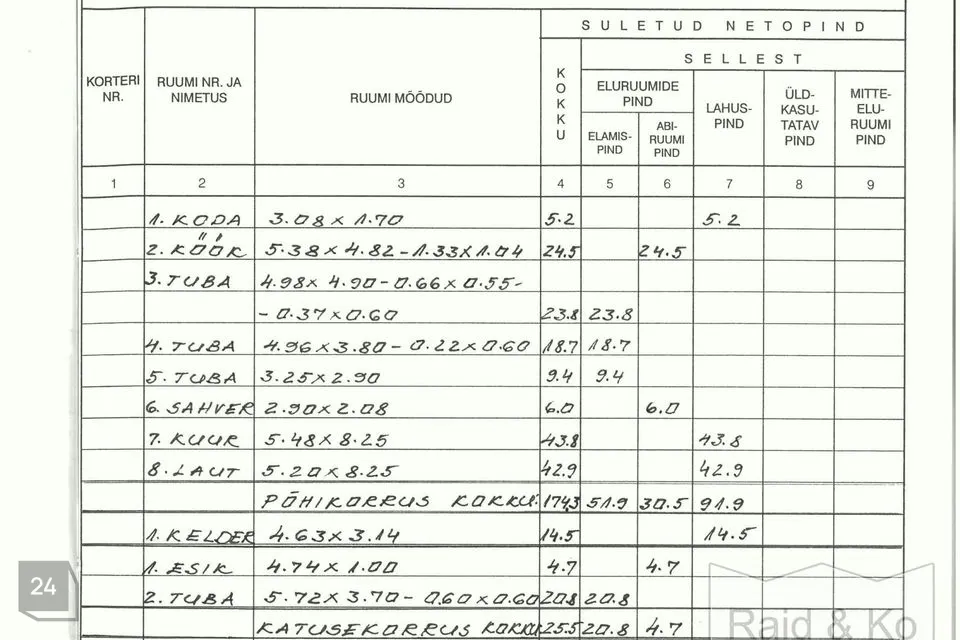 SULETUD NETOPIND
SELLEST
KORTERI NR.
RUUMI NR. JA NIMETUS
RUUMI MÕÕDUD
KOKKU
ELURUUMIDE PIND
ELAMIS-PIND
ABI-RUUMI PIND
LAHUS-PIND
ÜLD-KASU-TATAV PIND
MITTE-ELU-RUUMI PIND
1 2 3 4 5 6 7 8 9
1. KODA 3.08 x 1.70 5.2 5.2
2. KÖÖK 5.38 x 4.82 - 1.33 x 1.04 24.5 24.5
3. TUBA 4.98 x 4.90 - 0.66 x 0.55 -
- 0.37 x 0.60 23.8 23.8
4. TUBA 4.96 x 3.80 - 0.22 x 0.60 18.7 18.7
5. TUBA 3.25 x 2.90 9.4 9.4
6. SAHVER 2.90 x 2.08 6.0 6.0
7. KUUR 5.48 x 8.25 43.8 43.8
8. LAUT 5.20 x 8.25 42.9 42.9
PÕHIKORRUS KOKKU: 174.3 51.9 30.5 91.9
1. KELDER 4.63 x 3.14 14.5 14.5
1. ESIK 4.74 x 1.00 4.7 4.7
2. TUBA 5.72 x 3.70 - 0.60 x 0.60 20.8 20.8
KATUSEKORRUS KOKKU 25.5 20.8 4.7
24
Raid & Ko